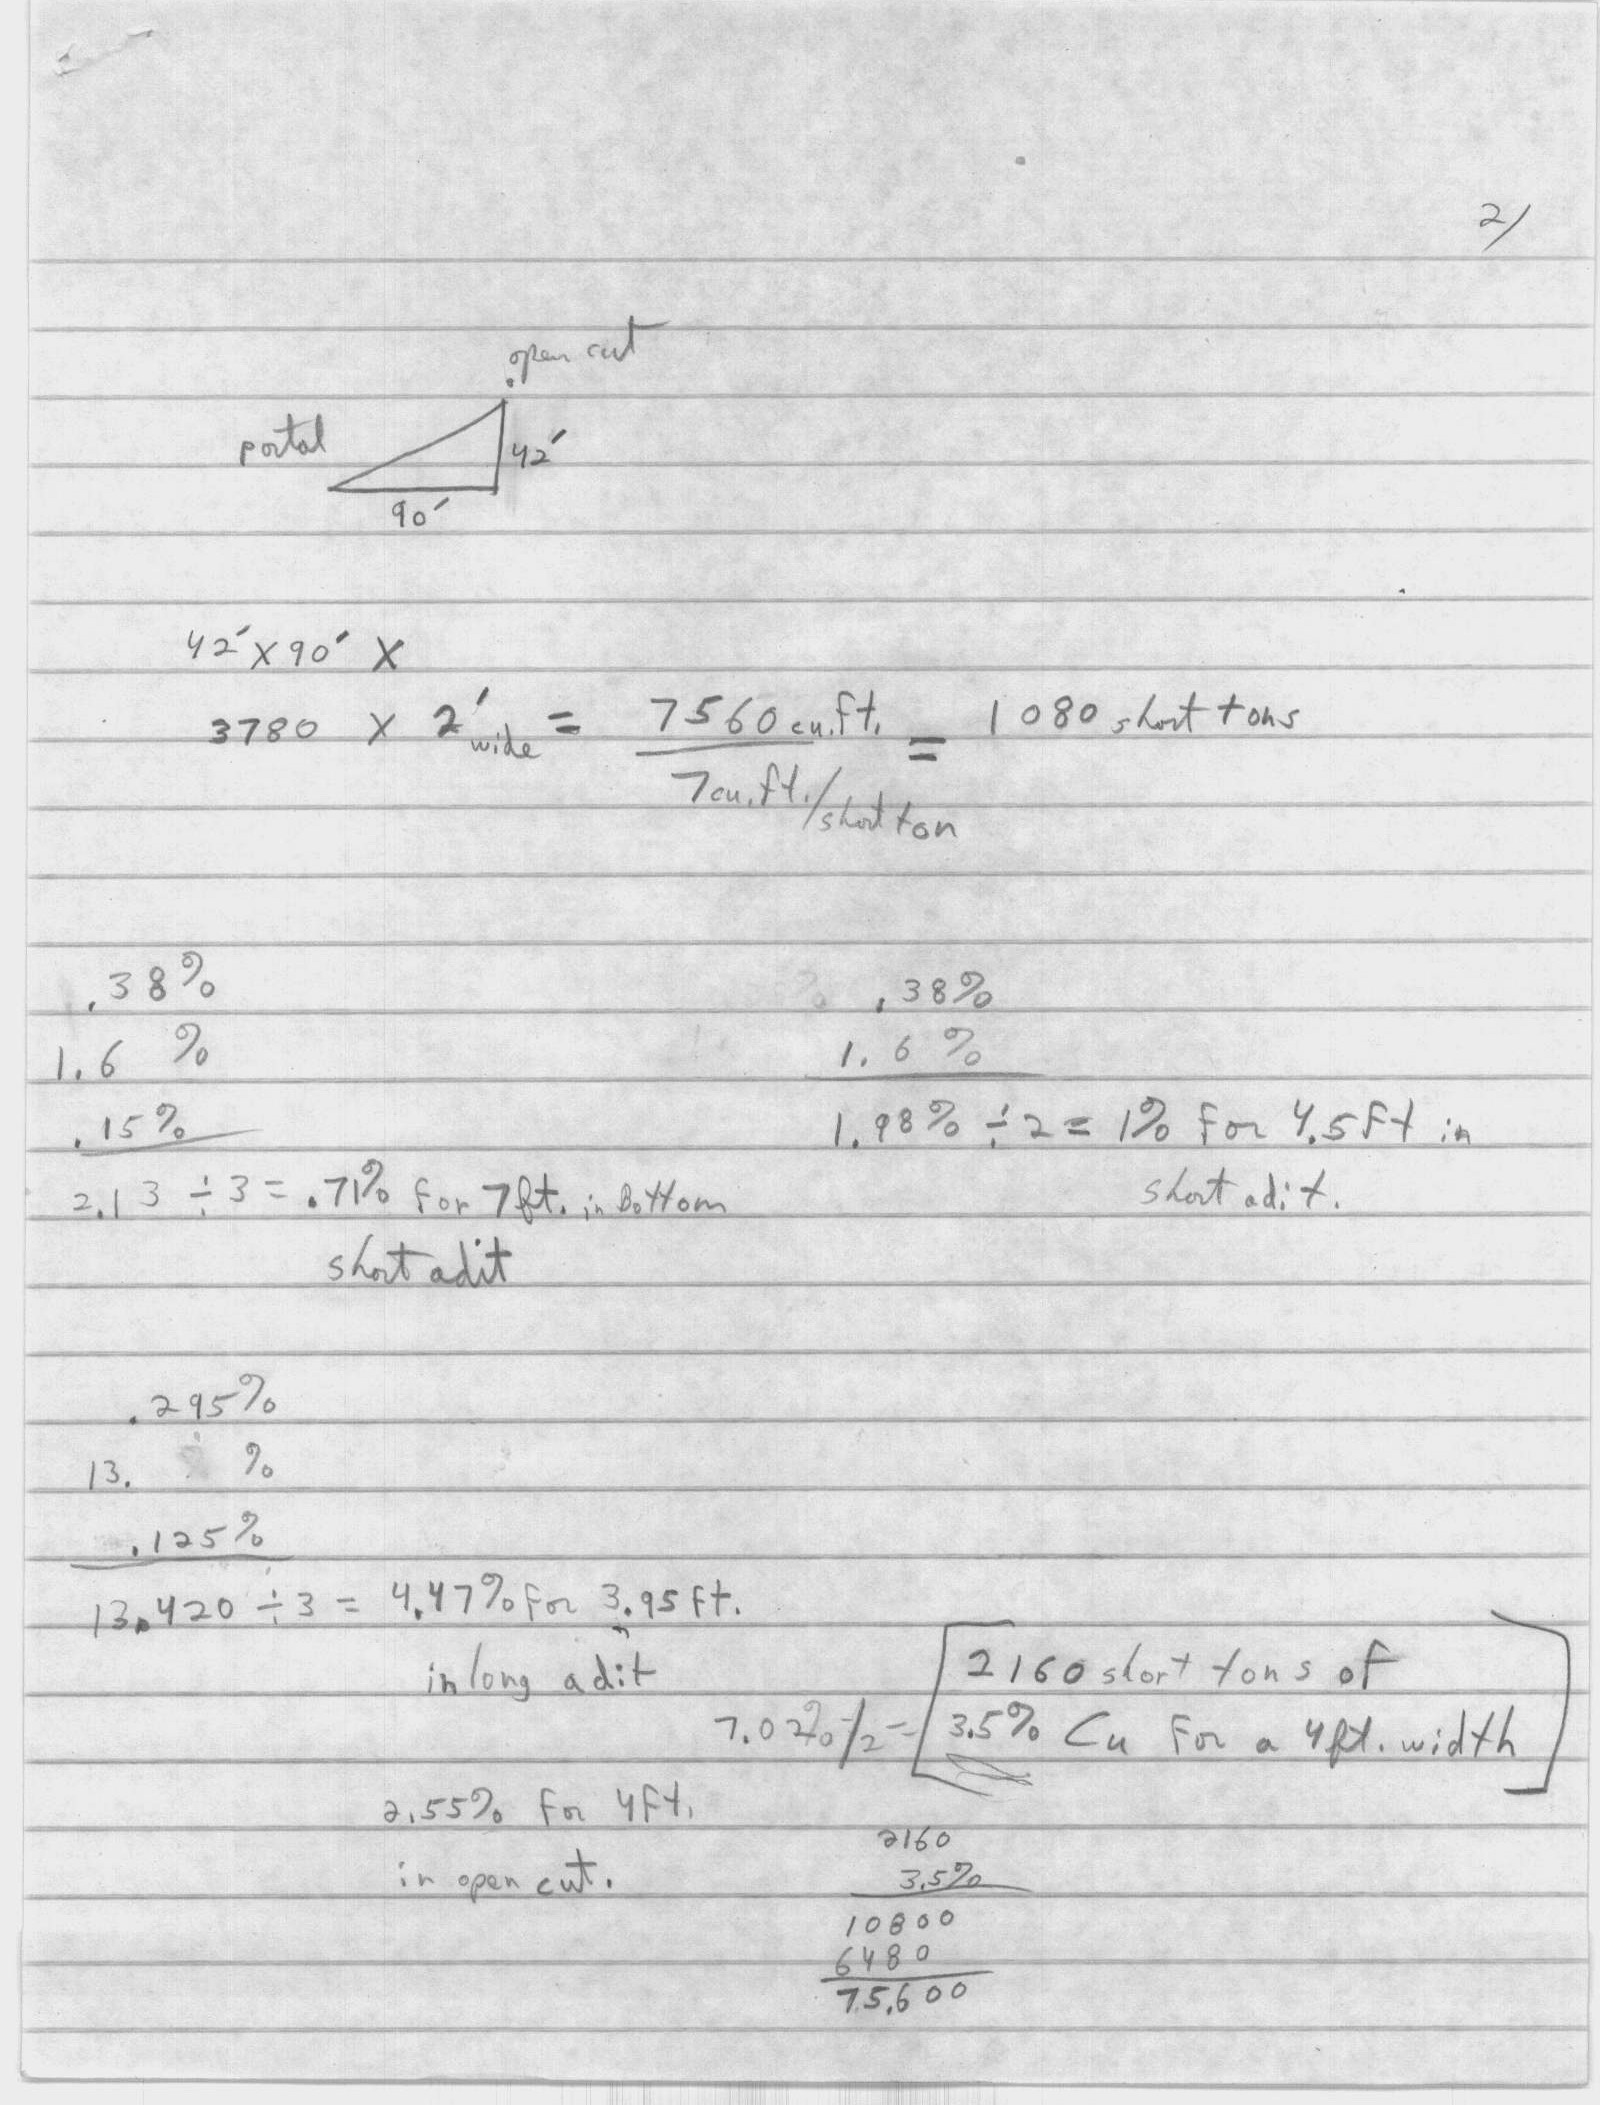 2/
open cut
portal
42'
90'
42' X 90' X
3780 X 2' wide = 7560 cu.ft. = 1080 short tons
7 cu.ft./short ton
.38%
1.6 %
.15%
2.13 ÷ 3 = .71% for 7 ft. in Bottom
short adit
.38%
1.6 %
1.98% ÷ 2 = 1% for 4.5 ft in
short adit.
.295%
13. %
.125%
13.420 ÷ 3 = 4.47% for 3.95 ft.
in long adit
7.02%/2 = [2160 short tons of
3.5% Cu for a 4 ft. width]
2.55% for 4 ft.
in open cut.
2160
3.5%
10800
6480
75,600